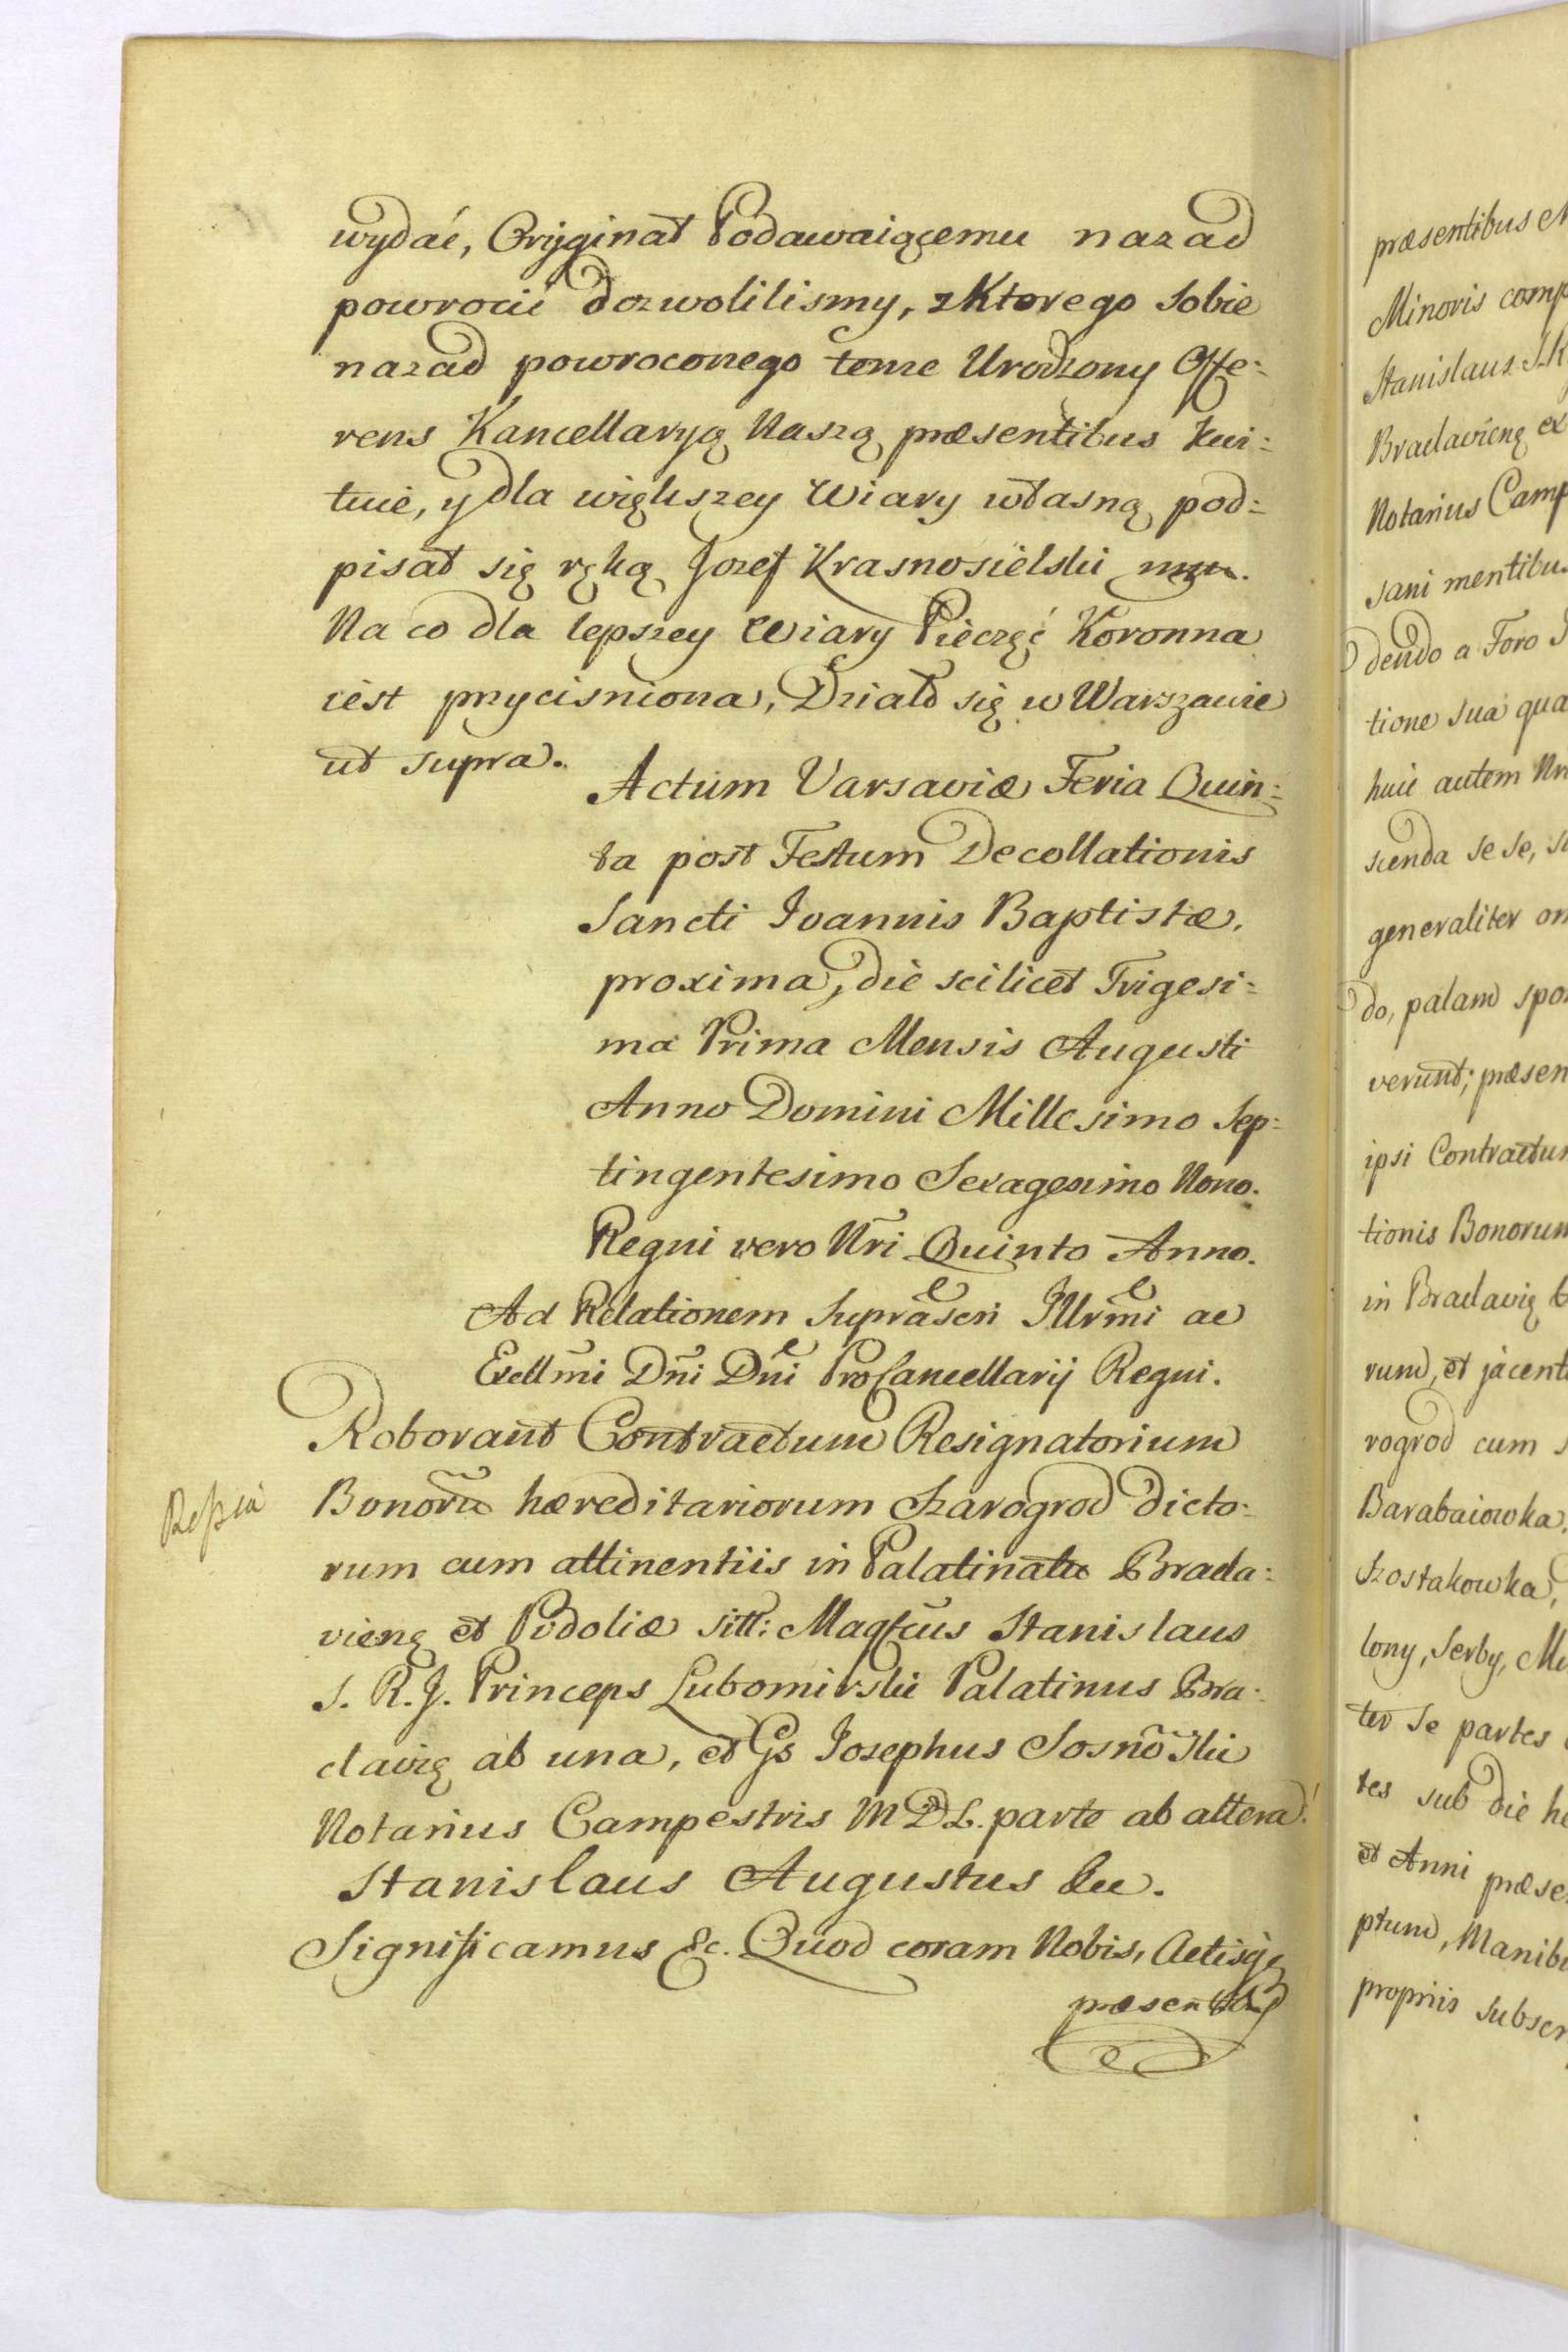 wydać, Oryginał Podawaiącemu nazad
powrocić dozwolilismy, z Ktorego Sobie
nazad powroconego tenże Urodzony Offe:
rens Kancellaryą Naszą præsentibus kwi:
tuie, y dla większey Wiary własną pod:
pisał się ręką Jozef Krasnosielski mp.
Na co dla lepszey Wiary Pieczęć Koronna
iest przycisniona, Działo się w Warszawie
ut supra.
Actum Varsaviæ Feria Quin:
ta post Festum Decollationis
Sancti Ioannis Baptistæ.
proxima, die scilicet Trigesi:
ma Prima Mensis Augusti
Anno Domini Millesimo Sep:
tingentesimo Sexagesimo Nono.
Regni vero Nri Quinto Anno.
Ad Relationem Suprascri Illrmi ac
Excllmi Dni Dni ProCancellarij Regni.
Roborant Contractum Resignatorium
Bonoru hæreditariorum Szarogrod dicto:
rum cum attinentiis in Palatinatu Bracla:
vieng et Podoliæ sitt: Magfcus Stanislaus
S. R. J. Princeps Lubomirski Palatinus Bra:
clavię ab una, et Gs Josephus Sosnoski
Notarius Campestris M D L. parte ab altera.
Stanislaus Augustus &c.
Significamus &c. Quod coram Nobis, Actisq
præsentibus
præsentibus M
Minoris comp
Stanislaus
Braclavieng ex
Notarius Camp
sani mentibus
dendo a Foro
tione sua qua
huic autem
scenda se se, su
generaliter om
do, palam spon
verunt; præsen
ipsi Contractum
tionis Bonorum
in Braclavię
rum, et jacent
rogrod cum
Barabaiowka.
Szostakowka,
lony, Serby,
ter se partes
tes sub die
et Anni præse
ptum, Manibu
propriis subscr